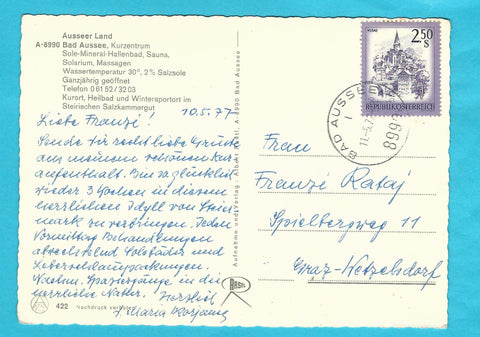 Ausseer Land
A-8990 Bad Aussee, Kurzentrum
Sole-Mineral-Hallenbad, Sauna,
Solarium, Massagen
Wassertemperatur 30°, 2% Salzsole
Ganzjährig geöffnet
Telefon 0 61 52 / 32 03
Kurort, Heilbad und Wintersportort im
Steirischen Salzkammergut
10.5.77
Liebe Franzi!
Sende Dir recht liebe Grüße
aus meinem schönen Kur
aufenthalt. Bin so glücklich
wieder 3 Wochen in diesem
herrlichen Idyll von Steier
mark zu verbringen. Jeden
Vormittag Behandlungen
abwechselnd Solbäder und
Leberschlammpackungen.
Nachm. Spaziergänge in die
herrliche Natur! Herzlich
Maria
422 Nachdruck verboten
Aufnahme und Verlag
A-8990 Bad Aussee
RASTL
2.50
S
REPUBLIK ÖSTERREICH
BAD AUSSEE
8990
Frau
Franzi Rataj
Spielbergweg 11
Graz-Wetzelsdorf